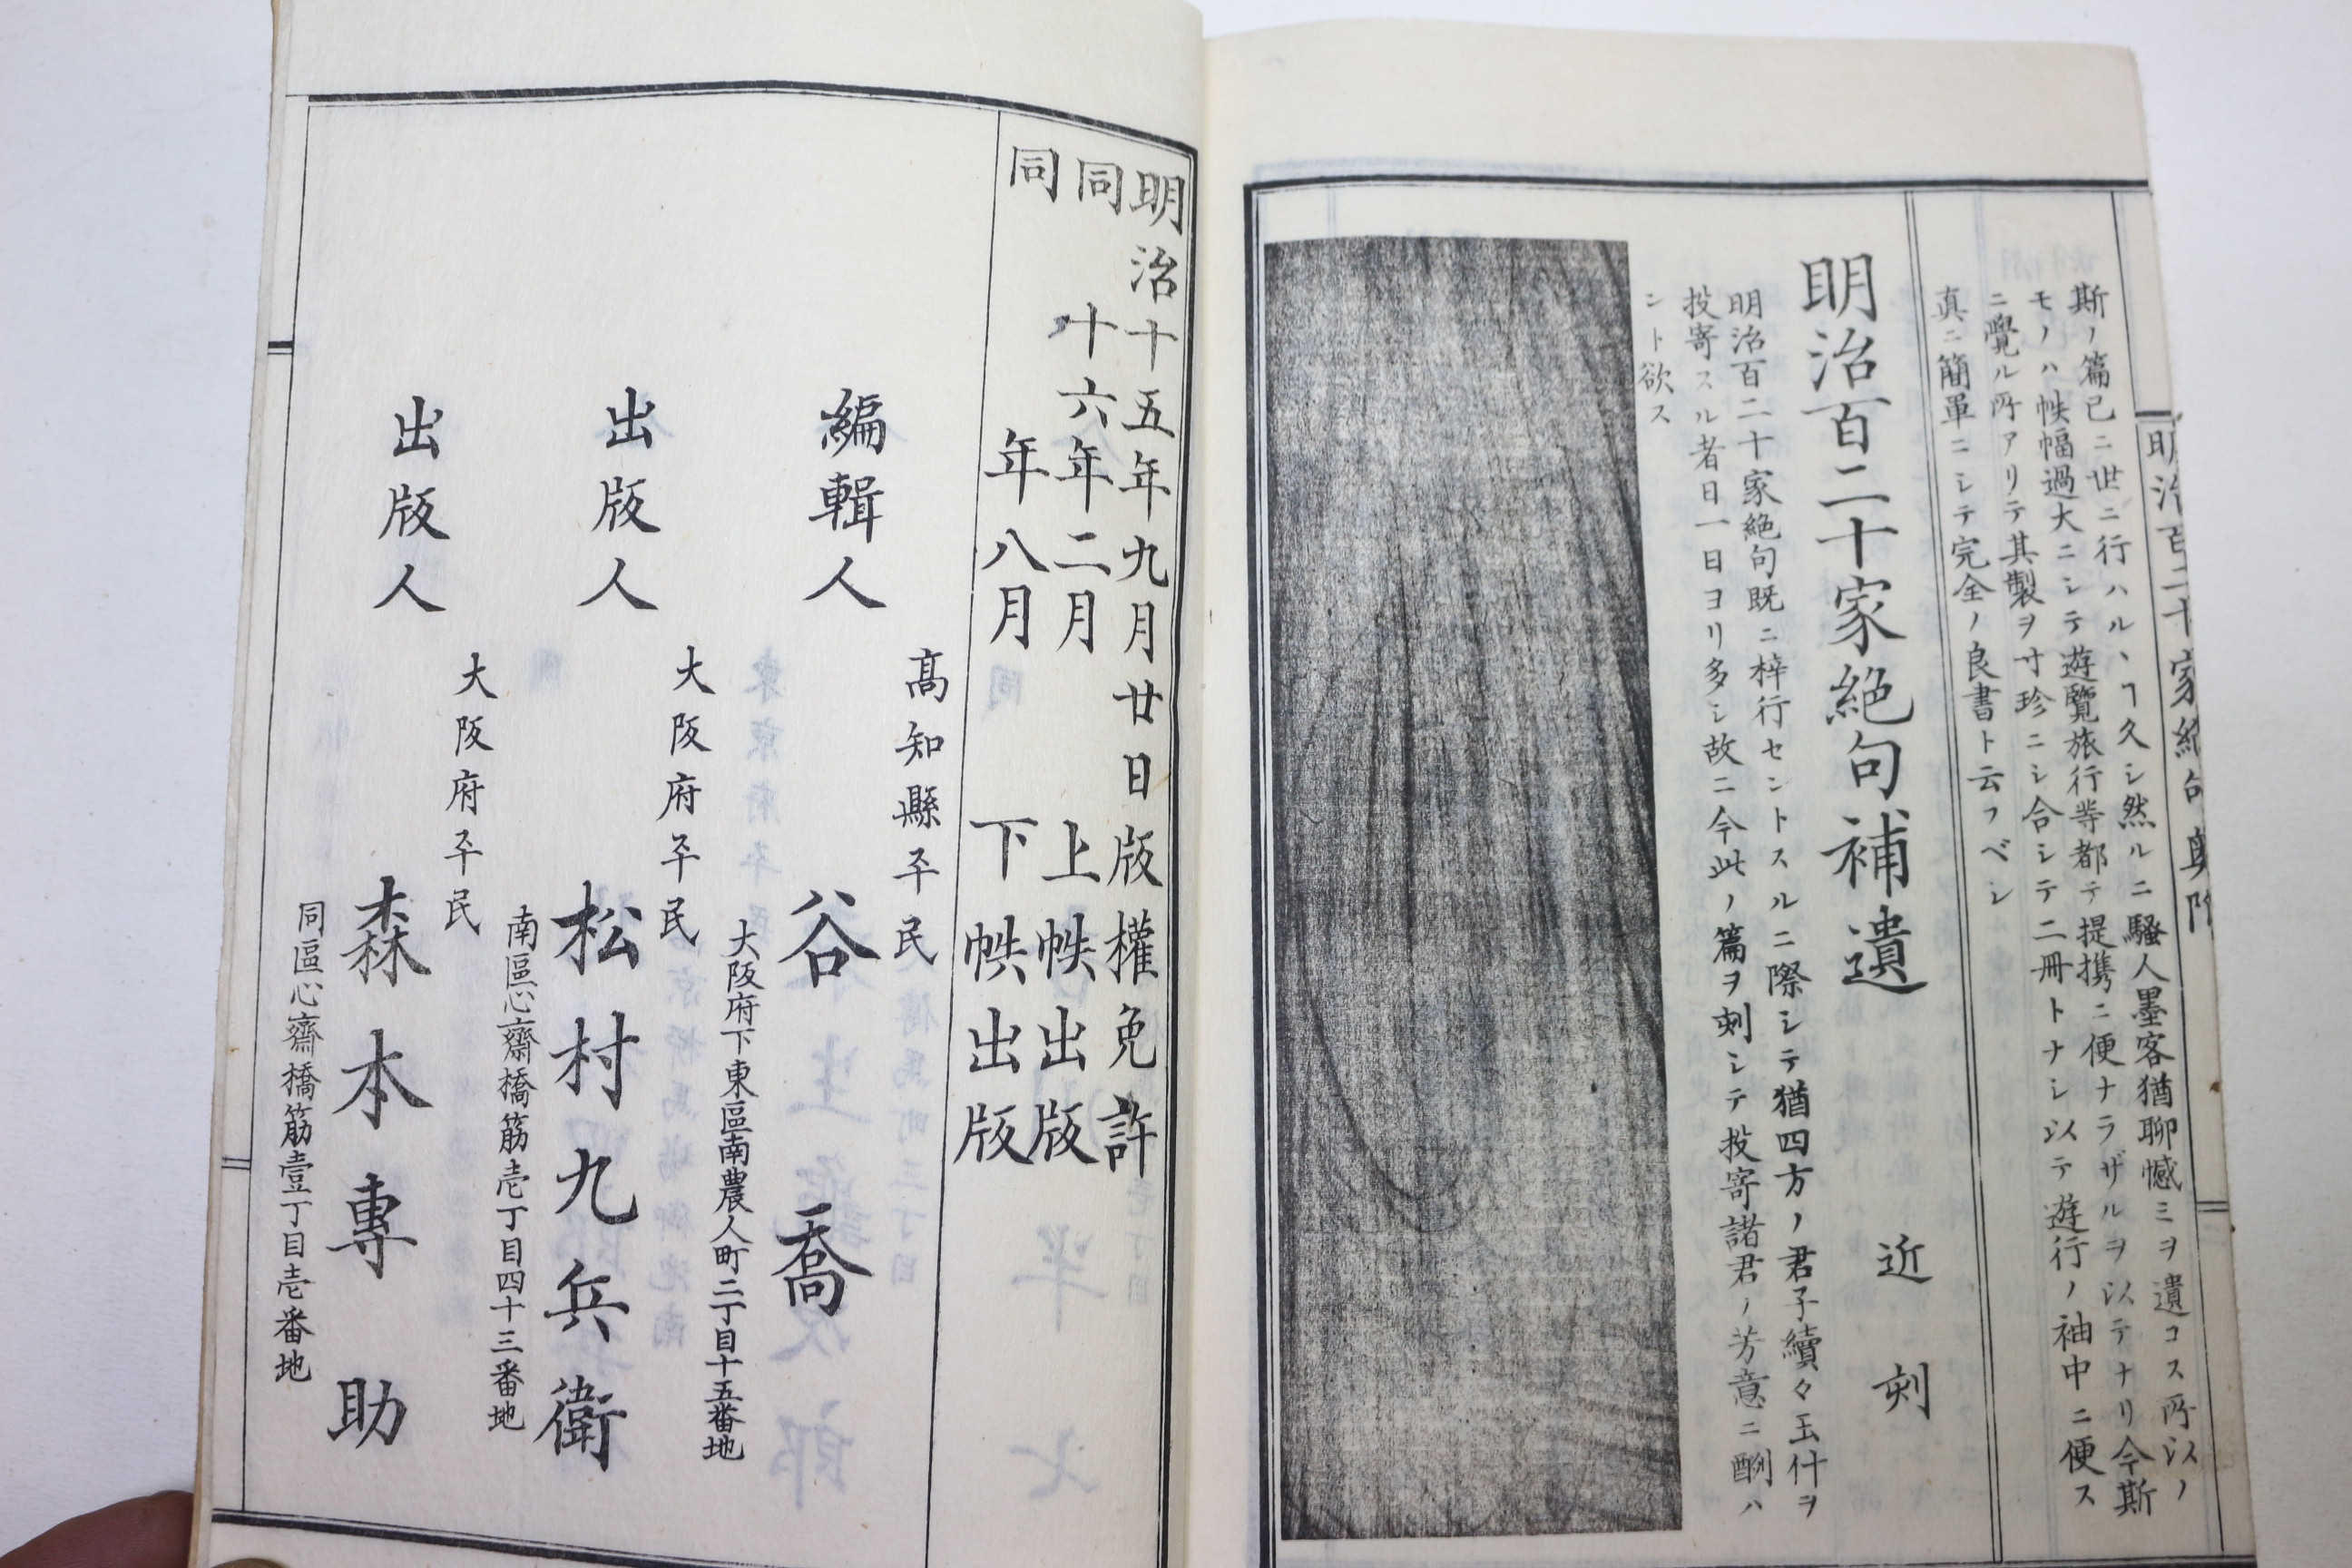 斯ノ篇已ニ世ニ行ハルヽヿ久シ然ルニ騷人墨客猶聊憾ミヲ遺コス所以ノ
モノハ帙幅過大ニシテ遊覽旅行等都テ提携ニ便ナラザルヲ以テナリ今斯
ニ覺ル所アリテ其製ヲ寸珍ニシ合シテ二冊トナシ以テ遊行ノ袖中ニ便ス
真ニ簡單ニシテ完全ノ良書ト云フベシ
明治百二十家絶句補遺 近刻
明治百二十家絶句既ニ梓行セントスルニ際シテ猶四方ノ君子續々玉什ヲ
投寄スル者日一日ヨリ多シ故ニ今此ノ篇ヲ刻シテ投寄諸君ノ芳意ニ酬ハ
ント欲ス
明治十五年九月廿日版權免許
同十六年二月上帙出版
同年八月下帙出版
高知縣平民
編輯人 谷喬
大阪府下東區南農人町二丁目十五番地
大阪府平民
出版人 松村九兵衛
南區心齋橋筋壱丁目四十三番地
大阪府平民
出版人 森本專助
同區心齋橋筋壹丁目壱番地